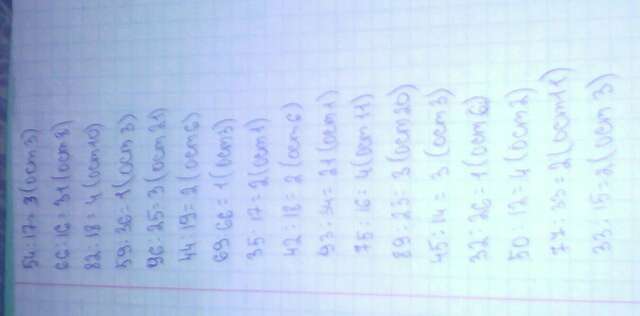 54:17=3(ост3)
66:16=31(ост8)
82:18=4(ост10)
59:36=1(ост3)
96:25=3(ост21)
44:19=2(ост6)
69:66=1(ост3)
35:17=2(ост1)
42:18=2(ост6)
93:34=21(ост1)
75:16=4(ост11)
89:23=3(ост20)
45:14=3(ост3)
32:26=1(ост6)
50:12=4(ост2)
77:33=2(ост11)
33:15=2(ост3)